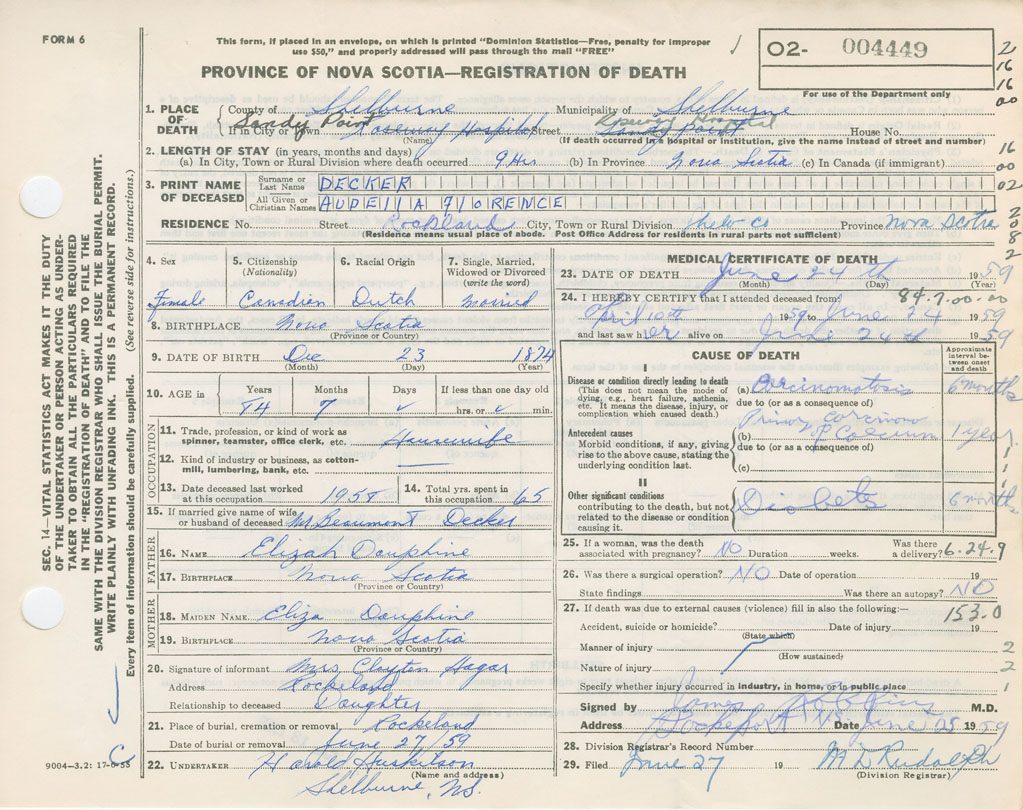 FORM 6
This form, if placed in an envelope, on which is printed "Dominion Statistics—Free, penalty for improper
use $50," and properly addressed will pass through the mail "FREE"
PROVINCE OF NOVA SCOTIA—REGISTRATION OF DEATH
O2- 004449
For use of the Department only
2
16
16
00
16
00
02
2
0
8
2
SEC. 14—VITAL STATISTICS ACT MAKES IT THE DUTY
OF THE UNDERTAKER OR PERSON ACTING AS UNDER-
TAKER TO OBTAIN ALL THE PARTICULARS REQUIRED
IN THE "REGISTRATION OF DEATH" AND TO FILE THE
SAME WITH THE DIVISION REGISTRAR WHO SHALL ISSUE THE BURIAL PERMIT.
WRITE PLAINLY WITH UNFADING INK. THIS IS A PERMANENT RECORD.
Every item of information should be carefully supplied. (See reverse side for instructions.)
1. PLACE OF DEATH
County of Shelburne Municipality of Shelburne
If in City or Town Sandy Point Roseway Hospital Street Roseway Hospital Sandy Point House No.
(Name) (If death occurred in a hospital or institution, give the name instead of street and number)
2. LENGTH OF STAY (in years, months and days)
(a) In City, Town or Rural Division where death occurred 9 Hrs (b) In Province Nova Scotia (c) In Canada (if immigrant)
3. PRINT NAME OF DECEASED
Surname or Last Name DECKER
All Given or Christian Names AUDELLA FLORENCE
RESIDENCE No. Street Rockland City, Town or Rural Division Shel Co Province Nova Scotia
(Residence means usual place of abode. Post Office Address for residents in rural parts not sufficient)
4. Sex Female
5. Citizenship (Nationality) Canadian
6. Racial Origin Dutch
7. Single, Married, Widowed or Divorced (write the word) Married
8. BIRTHPLACE Nova Scotia
(Province or Country)
9. DATE OF BIRTH Dec 23 1874
(Month) (Day) (Year)
10. AGE in Years Months Days If less than one day old
84 7 hrs. or min.
OCCUPATION
11. Trade, profession, or kind of work as
spinner, teamster, office clerk, etc. Housewife
12. Kind of industry or business, as cotton-
mill, lumbering, bank, etc.
13. Date deceased last worked
at this occupation 1958
14. Total yrs. spent in
this occupation 65
15. If married give name of wife
or husband of deceased Mr Beaumont Decker
FATHER
16. NAME Elizah Dauphine
17. BIRTHPLACE Nova Scotia
(Province or Country)
MOTHER
18. MAIDEN NAME Eliza Dauphine
19. BIRTHPLACE Nova Scotia
(Province or Country)
20. Signature of informant Mrs Clayton Hagar
Address Rockeland
Relationship to deceased Daughter
21. Place of burial, cremation or removal Rockeland
Date of burial or removal June 27/59
22. UNDERTAKER Harold Huskilson
(Name and address)
Shelburne, N.S.
9004-3.2: 17-6-55
MEDICAL CERTIFICATE OF DEATH
23. DATE OF DEATH June 24 th 1959
(Month) (Day) (Year)
84.7.00.00
24. I HEREBY CERTIFY that I attended deceased from:
April 10th 1959 to June 24 1959
and last saw her alive on June 24th 1959
CAUSE OF DEATH
Approximate interval between onset and death
I
Disease or condition directly leading to death
(This does not mean the mode of
dying, e.g., heart failure, asthenia,
etc. It means the disease, injury, or
complication which caused death.)
(a) Carcinomatosis 6 months
due to (or as a consequence of)
Antecedent causes
Morbid conditions, if any, giving
rise to the above cause, stating the
underlying condition last.
Primary carcinoma
(b) Caecum 1 year
due to (or as a consequence of)
(c)
II
Other significant conditions
contributing to the death, but not
related to the disease or condition
causing it.
Diabets 6 months
25. If a woman, was the death
associated with pregnancy? NO Duration weeks. Was there a delivery? 6-24-9
26. Was there a surgical operation? NO Date of operation 19
State findings Was there an autopsy? NO
27. If death was due to external causes (violence) fill in also the following:—
153.0
Accident, suicide or homicide? Date of injury 19
(State which)
Manner of injury 2
(How sustained)
Nature of injury 2
Specify whether injury occurred in industry, in home, or in public place 1
Signed by James M.D.
Address Lockeport N.S. Date June 25 1959
28. Division Registrar's Record Number
29. Filed June 27 19 M D Rudolph
(Division Registrar)